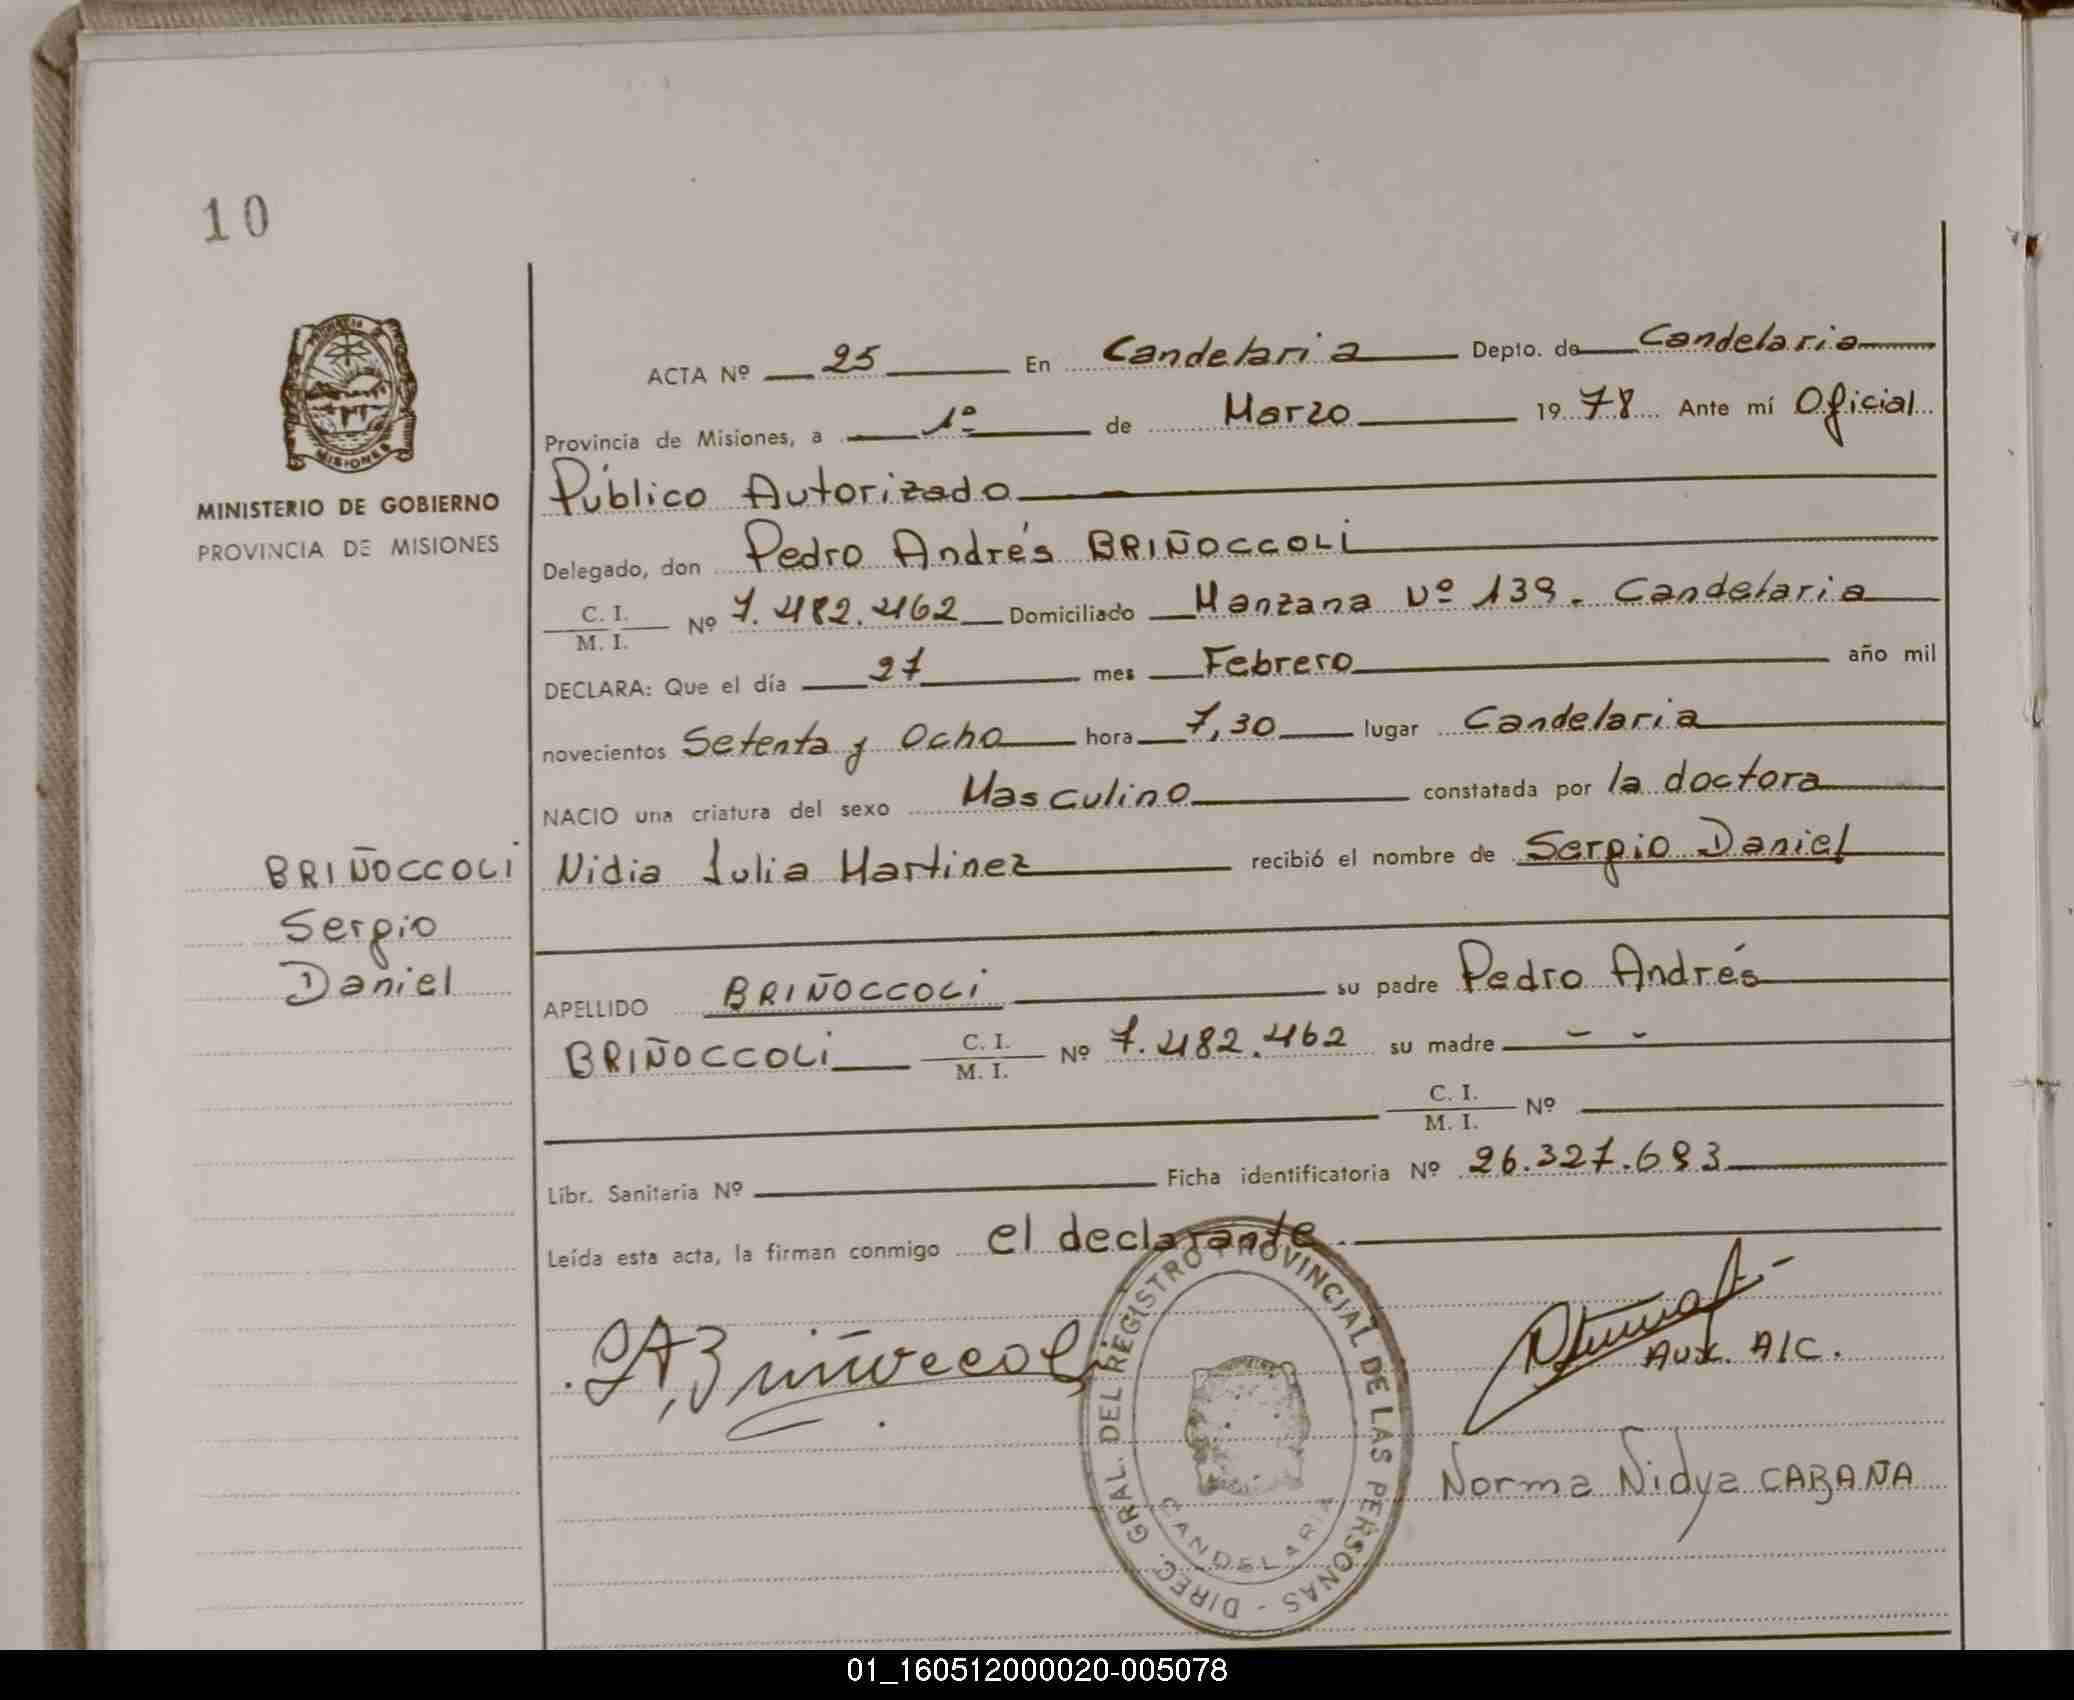 10
MISIONES
MINISTERIO DE GOBIERNO
PROVINCIA DE MISIONES
BRIÑOCCOLI
Sergio
Daniel
ACTA Nº 25 En Candelaria Depto. de Candelaria
Provincia de Misiones, a 1º de Marzo 1978 Ante mí Oficial
Público Autorizado
Delegado, don Pedro Andrés BRIÑOCCOLI
C. I.
M. I. Nº 7.482.462 Domiciliado Manzana Nº 139. Candelaria
DECLARA: Que el día 27 mes Febrero año mil
novecientos Setenta y Ocho hora 7,30 lugar Candelaria
NACIO una criatura del sexo Masculino constatada por la doctora
Nidia Julia Martinez recibió el nombre de Sergio Daniel
APELLIDO BRIÑOCCOLI su padre Pedro Andrés
BRIÑOCCOLI C. I.
M. I. Nº 7.482.462 su madre - -
C. I.
M. I. Nº
Libr. Sanitaria Nº Ficha identificatoria Nº 26.327.693
Leída esta acta, la firman conmigo el declarante.
P.A, Briñoccoli
Aux. A/C.
Norma Nidya CABAÑA
DIREC. GRAL. DEL REGISTRO PROVINCIAL DE LAS PERSONAS -
CANDELARIA
01_160512000020-005078